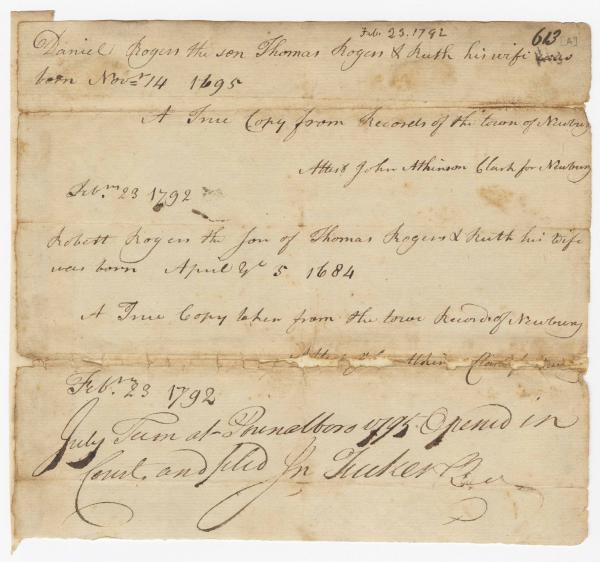 Feb. 23. 1792
613 [A]
Daniel Rogers the son Thomas Rogers & Ruth his wife
born Novr 14 1695
A True Copy from Records of the town of Newbury
Attest John Atkinson Clark for Newbury
Febry 23 1792
Robert Rogers the Son of Thomas Rogers & Ruth his Wife
was born April ye 5 1684
A True Copy taken from the town Records of Newbury
Febry 23 1792
July Term at Pownalboro 1795 Opened in
Court and filed Jn Tucker